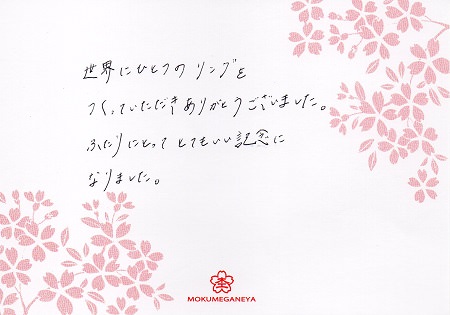 世界にひとつの リングを
つくっていただきありがとうございました。
ふたりにとって とてもいい記念に
なりました。
MOKUMEGANEYA